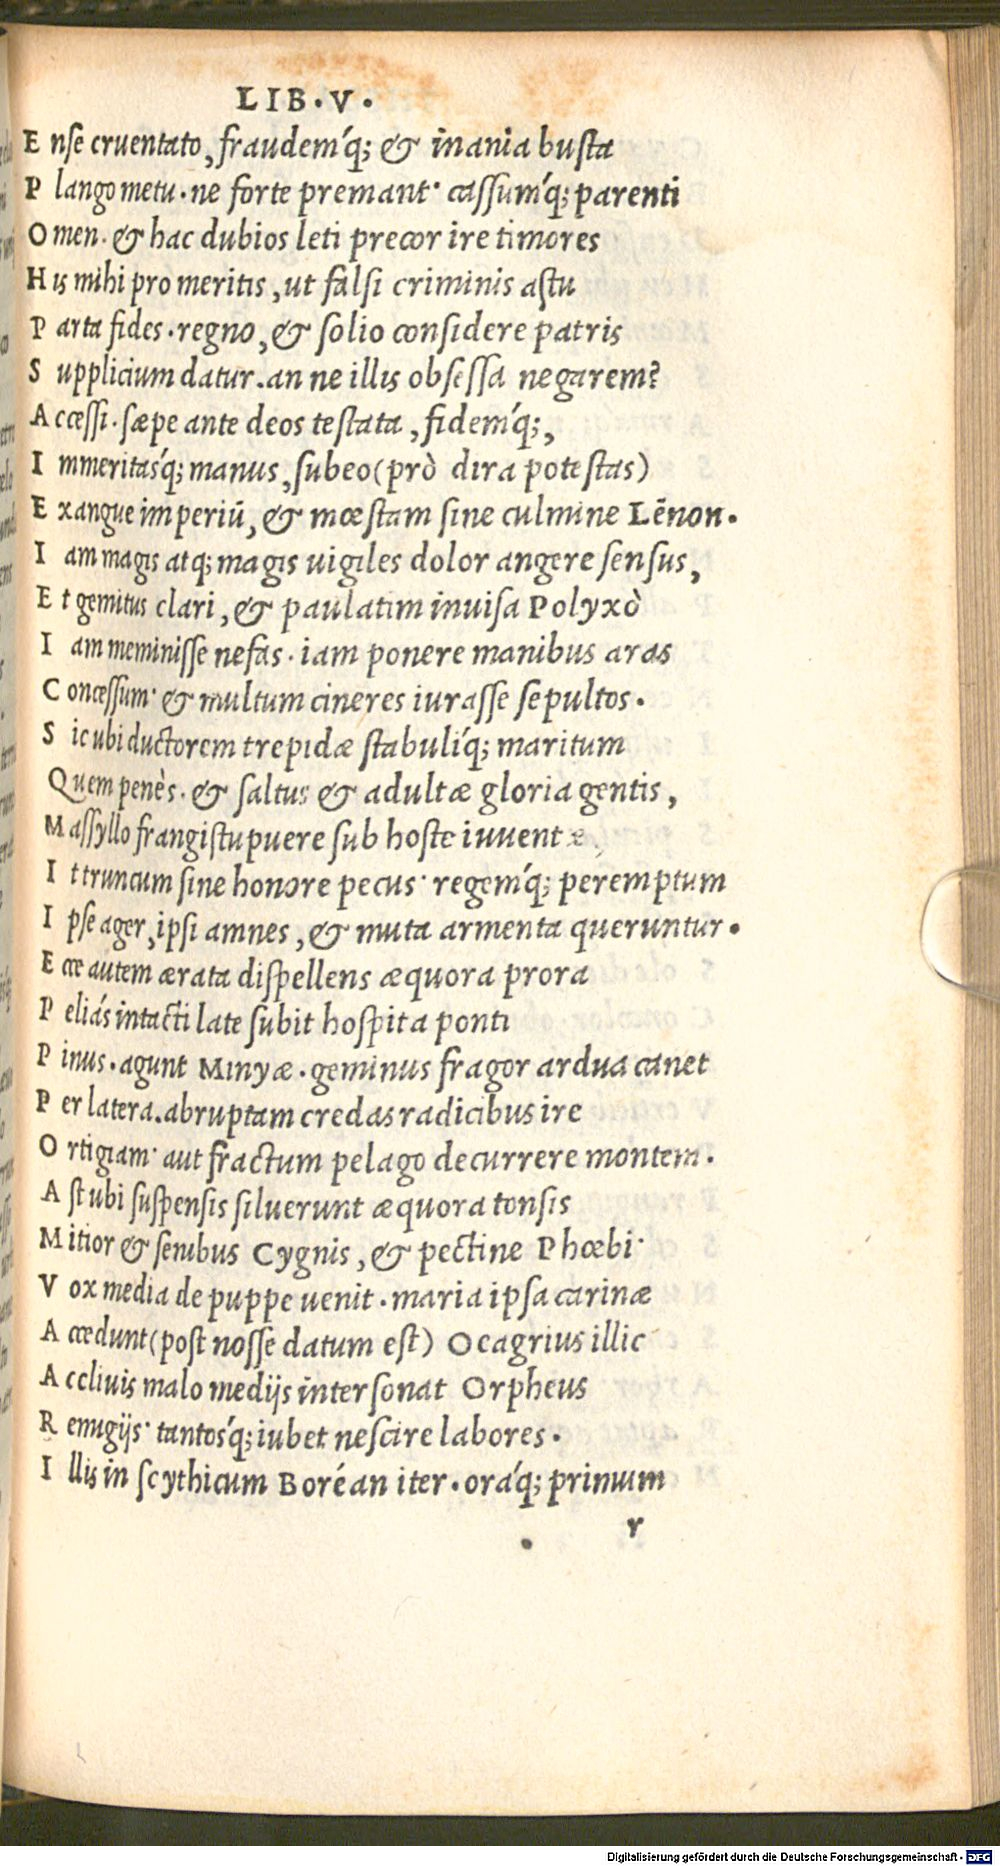 LIB·V·
E nse cruentato, fraudem'q; & inania busta
P lango metu·ne forte premant· cassum'q; parenti
O men·& hac dubios leti precor ire timores
H is mihi pro meritis, ut falsi criminis astu
P arta fides·regno, & solio considere patris
S upplicium datur·an ne illis obsessa negarem?
A ccessi·sæpe ante deos testata, fidem'q;,
I mmeritas'q; manus, subeo(prò dira potestas)
E xangue imperiū, & mœstam sine culmine Lēnon·
I am magis atq; magis uigiles dolor angere sensus,
E t gemitus clari, & paulatim inuisa Polyxò
I am meminisse nefas·iam ponere manibus aras
C oncessum· & multum cineres iurasse sepultos·
S ic ubi ductorem trepidæ stabuli'q; maritum
Quem penès·& saltus & adultæ gloria gentis,
M assyllo frangi stupuere sub hoste iuuentæ,
I t truncum sine honore pecus· regem'q; peremptum
I pse ager, ipsi amnes, & muta armenta queruntur·
E cce autem ærata dispellens æquora prora
P eliás intacti late subit hospita ponti
P inus·agunt Minyæ·geminus fragor ardua canet
P er latera·abruptam credas radicibus ire
O rtigiam· aut fractum pelago decurrere montem·
A st ubi suspensis siluerunt æquora tonsis
M itior & senibus Cygnis, & pectine Phœbi·
V ox media de puppe uenit·maria ipsa carinæ
A ccedunt(post nosse datum est) Oeagrius illic
A ccliuis malo medijs intersonat Orpheus
R emigijs· tantos'q; iubet nescire labores·
I llis in scythicum Boréan iter·orá'q; primum
r
Digitalisierung gefördert durch die Deutsche Forschungsgemeinschaft - DFG